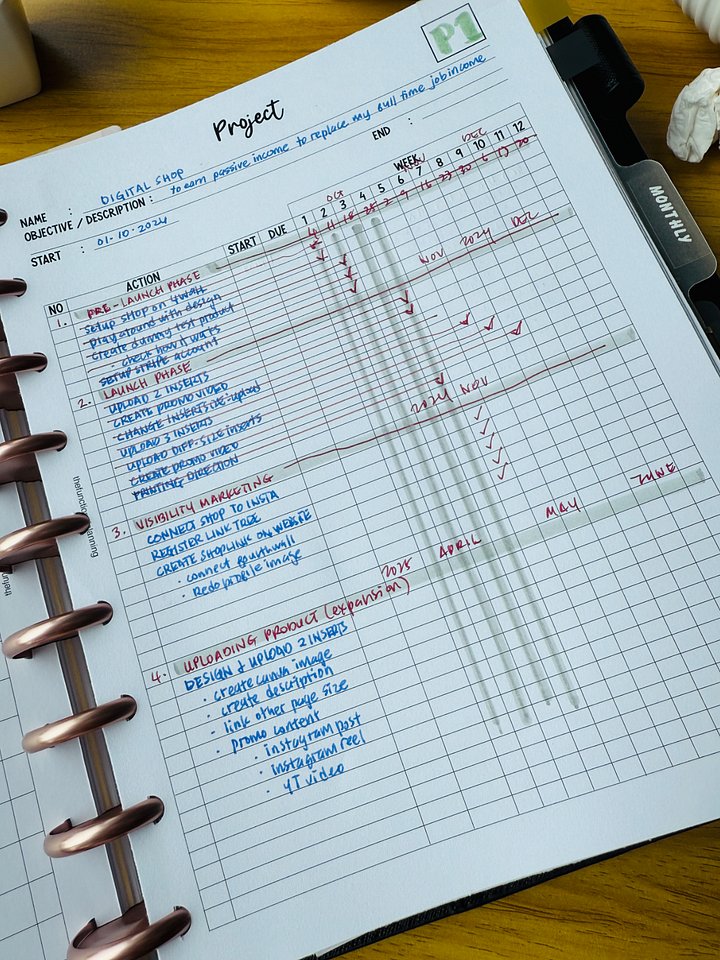 P1
Project
NAME : DIGITAL SHOP
OBJECTIVE / DESCRIPTION : to earn passive income to replace my full time job income
START : 01-10-2024
END :
WEEK
OCT NOV DEC
NO ACTION START DUE 1 2 3 4 5 6 7 8 9 10 11 12
4 11 18 25 2 9 16 23 30 6 13 20
1. PRE-LAUNCH PHASE
setup shop on 4wall
play around with design
create dummy test product
• check how it works
SETUP STRIPE account
2. LAUNCH PHASE NOV 2024 DEC
UPLOAD 2 INSERTS
CREATE PROMO VIDEO
CHANGE INSERTS SIZE - upload
UPLOAD 3 INSERTS
UPLOAD DIFF. SIZE inserts
CREATE PROMO VIDEO
PRINTING DIRECTION
3. VISIBILITY MARKETING 2024 NOV
CONNECT SHOP TO INSTA
REGISTER LINK TREE
CREATE SHOPLINK ON WEBSITE
• connect fourthwall
• Redo profile image
4. UPLOADING PRODUCT (expansion) 2025 APRIL MAY JUNE
DESIGN & UPLOAD 2 INSERTS
• create canva image
• create description
• link other page size
• promo content
• instagram post
• instagram reel
• YT video
MONTHLY